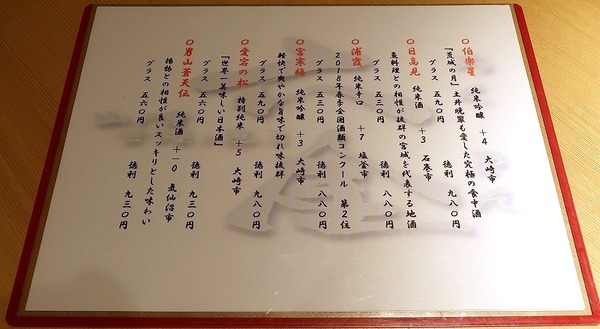 ○伯楽星 純米吟醸 +4 大崎市
『荒城の月』土井晩翠も愛した究極の食中酒
グラス 五九〇円 徳利 九八〇円
○日高見 純米酒 +3 石巻市
魚料理との相性が抜群の宮城を代表する地酒
グラス 五三〇円 徳利 八八〇円
○浦霞 純米辛口 +7 塩釜市
2018年春季全国酒類コンクール 第2位
グラス 五三〇円 徳利 八八〇円
○宮寒梅 純米吟醸 +3 大崎市
軽快で爽やかな旨味で切れ味抜群
グラス 五九〇円 徳利 九八〇円
○愛宕の松 特別純米 +5 大崎市
『世界一美味しい日本酒』
グラス 五六〇円 徳利 九三〇円
○男山蒼天伝 純米酒 +一〇 気仙沼市
揚物との相性が良いスッキリとした味わい
グラス 五六〇円 徳利 九三〇円